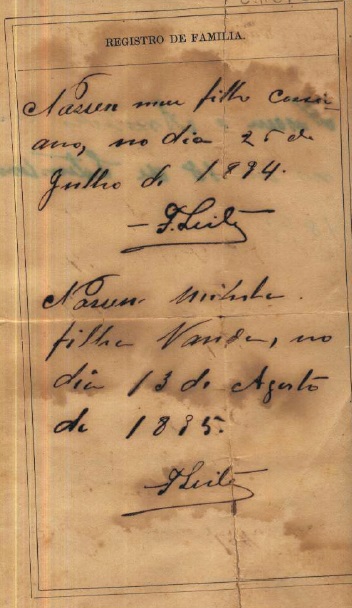 REGISTRO DE FAMILIA.
Nasceu meu filho Cassi-
ano, no dia 25 de
Julho de 1894.
F. Leite
Nasceu minha
filha Vanda, no
dia 13 de Agosto
de 1895.
F. Leite